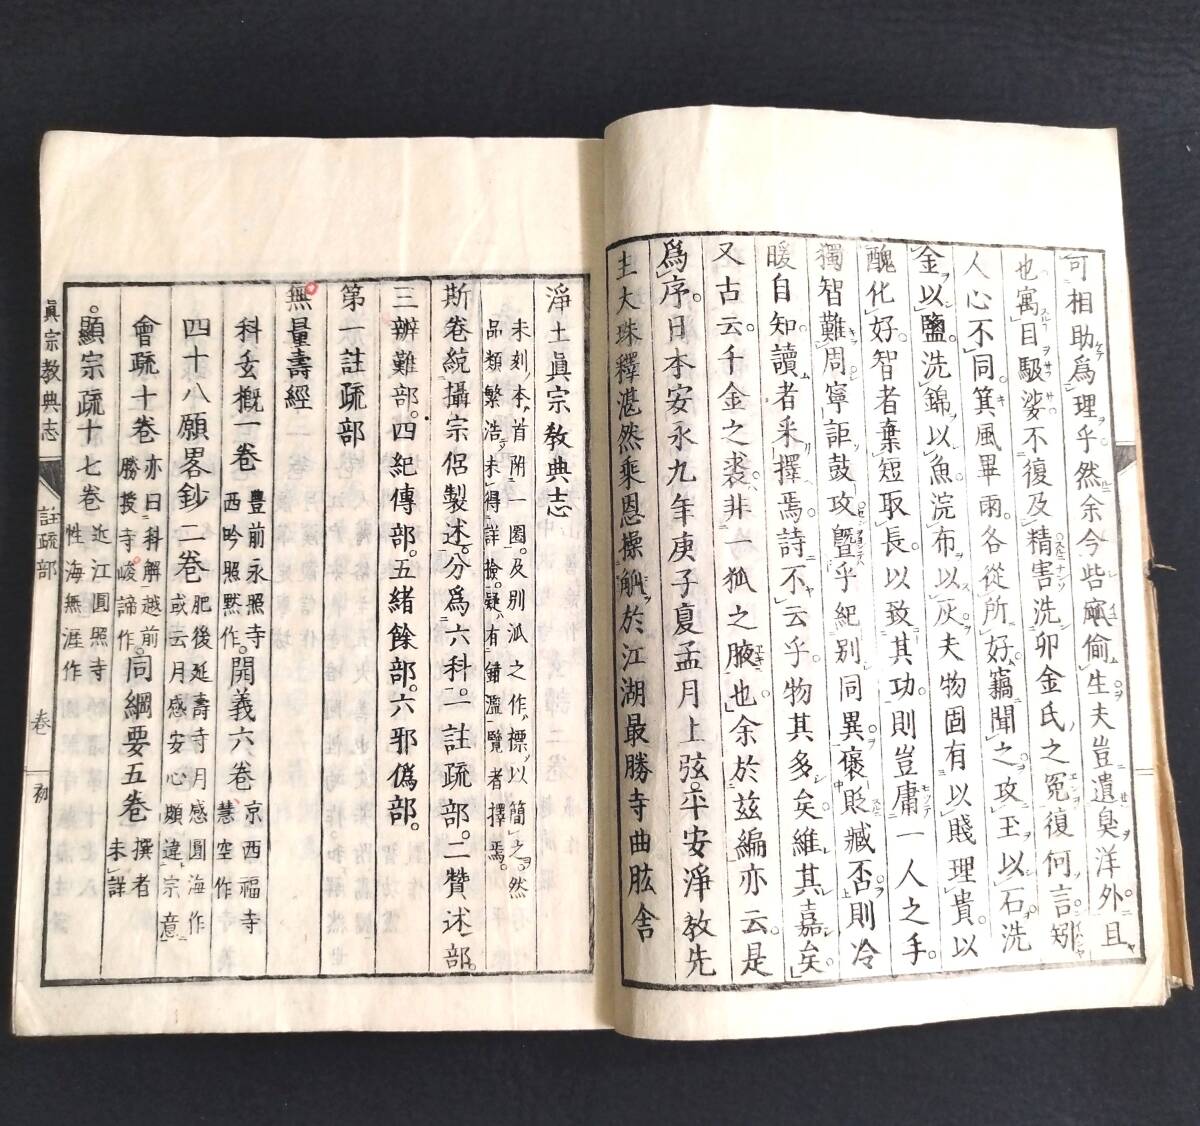 可相助爲理乎然余今呰窳偷生夫豈遺臭洋外且
也寓目馺娑不復及精害洗卯金氏之冤復何言矧
人心不同箕風畢雨。各從所好竊聞之攻玉以石洗
金以鹽洗錦以魚浣布以灰夫物固有以賤理貴。以
醜化好。智者棄短取長。以致其功。則豈庸一人之手。
獨智難周寧詎鼓攻曁乎紀別同異褒貶臧否則冷
暖自知讀者采擇焉。詩不云乎。物其多矣維其嘉矣
又古云。千金之裘。非一狐之腋也。余於茲編亦云。是
爲序。日本安永九年庚子夏孟月上弦。平安淨教先
主大珠釋湛然乘恩操觚於江湖最勝寺曲肱舍
淨土眞宗教典志
未刻本首附一圏。及別派之作標以簡之。然
品類繁浩。未得詳撿。疑有鋪濫覽者擇焉。
斯卷統攝宗侶製述。分爲六科。一註疏部。二贊述部。
三辨難部。四紀傳部。五緒餘部。六邪僞部。
第一註疏部
無量壽經
科玄概一卷 豐前永照寺西吟照黙作。開義六卷 京西福寺慧空作
四十八願畧鈔二卷 肥後延壽寺月感圓海作或云月感安心頗違宗意
會疏十卷 亦曰科解越前勝授寺峻諦作。同綱要五卷 撰者未詳
。顯宗疏十七卷 近江圓照寺性海無涯作
眞宗教典志 註疏部 卷初